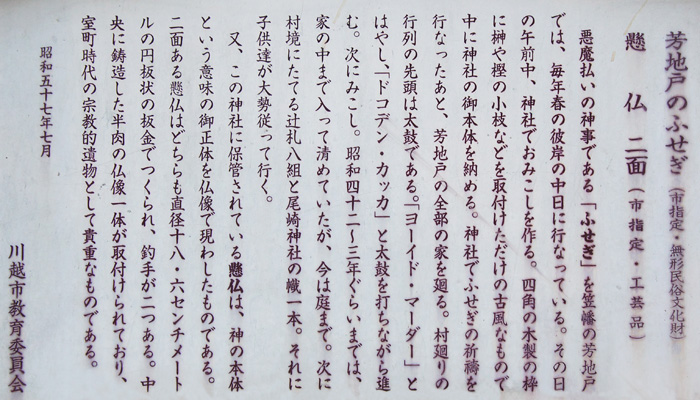 芳地戸のふせぎ（市指定・無形民俗文化財）
懸仏二面（市指定・工芸品）
悪魔払いの神事である「ふせぎ」を笠幡の芳地戸
では、毎年春の彼岸の中日に行なっている。その日
の午前中、神社でおみこしを作る。四角の木製の枠
に榊や樫の小枝などを取付けただけの古風なもので
中に神社の御本体を納める。神社でふせぎの祈禱を
行なったあと、芳地戸の全部の家を廻る。村廻りの
行列の先頭は太鼓である。「ヨーイド・マーダー」と
はやし、「ドコデン・カッカ」と太鼓を打ちながら進
む。次にみこし。昭和四十二〜三年ぐらいまでは、
家の中まで入って清めていたが、今は庭まで。次に
村境にたてる辻札八組と尾崎神社の幟一本。それに
子供達が大勢従って行く。
又、この神社に保管されている懸仏は、神の本体
という意味の御正体を仏像で現わしたものである。
二面ある懸仏はどちらも直径十八・六センチメート
ルの円坂状の坂金でつくられ、釣手が二つある。中
央に鋳造した半肉の仏像一体が取付けられており、
室町時代の宗教的遺物として貴重なものである。
昭和五十七年七月
川越市教育委員会